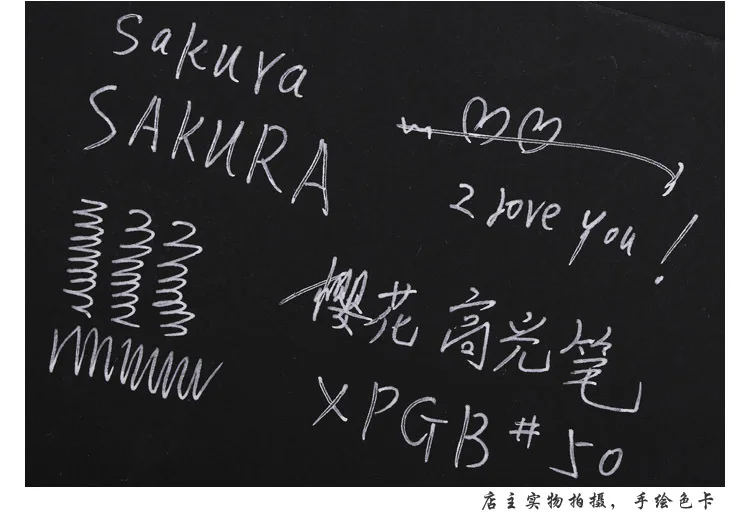 Sakura
SAKURA
I love you!
樱花高光笔
XPGB#50
店主实物拍摄，手绘色卡